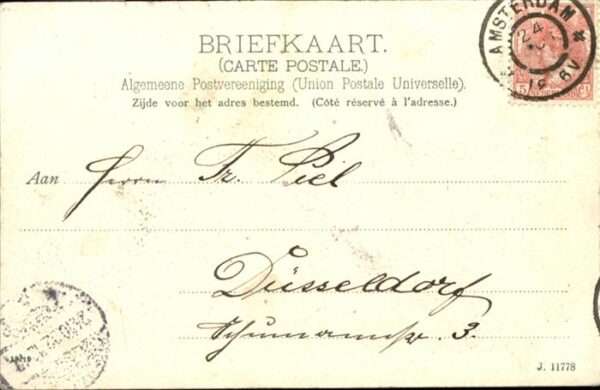 BRIEFKAART.
(CARTE POSTALE.)
Algemeene Postvereeniging (Union Postale Universelle).
Zijde voor het adres bestemd. (Côté réservé à l'adresse.)
AMSTERDAM
24
5
Aan Herrn Fr. Piel
Düsseldorf
Schumannstr. 3.
J. 11778